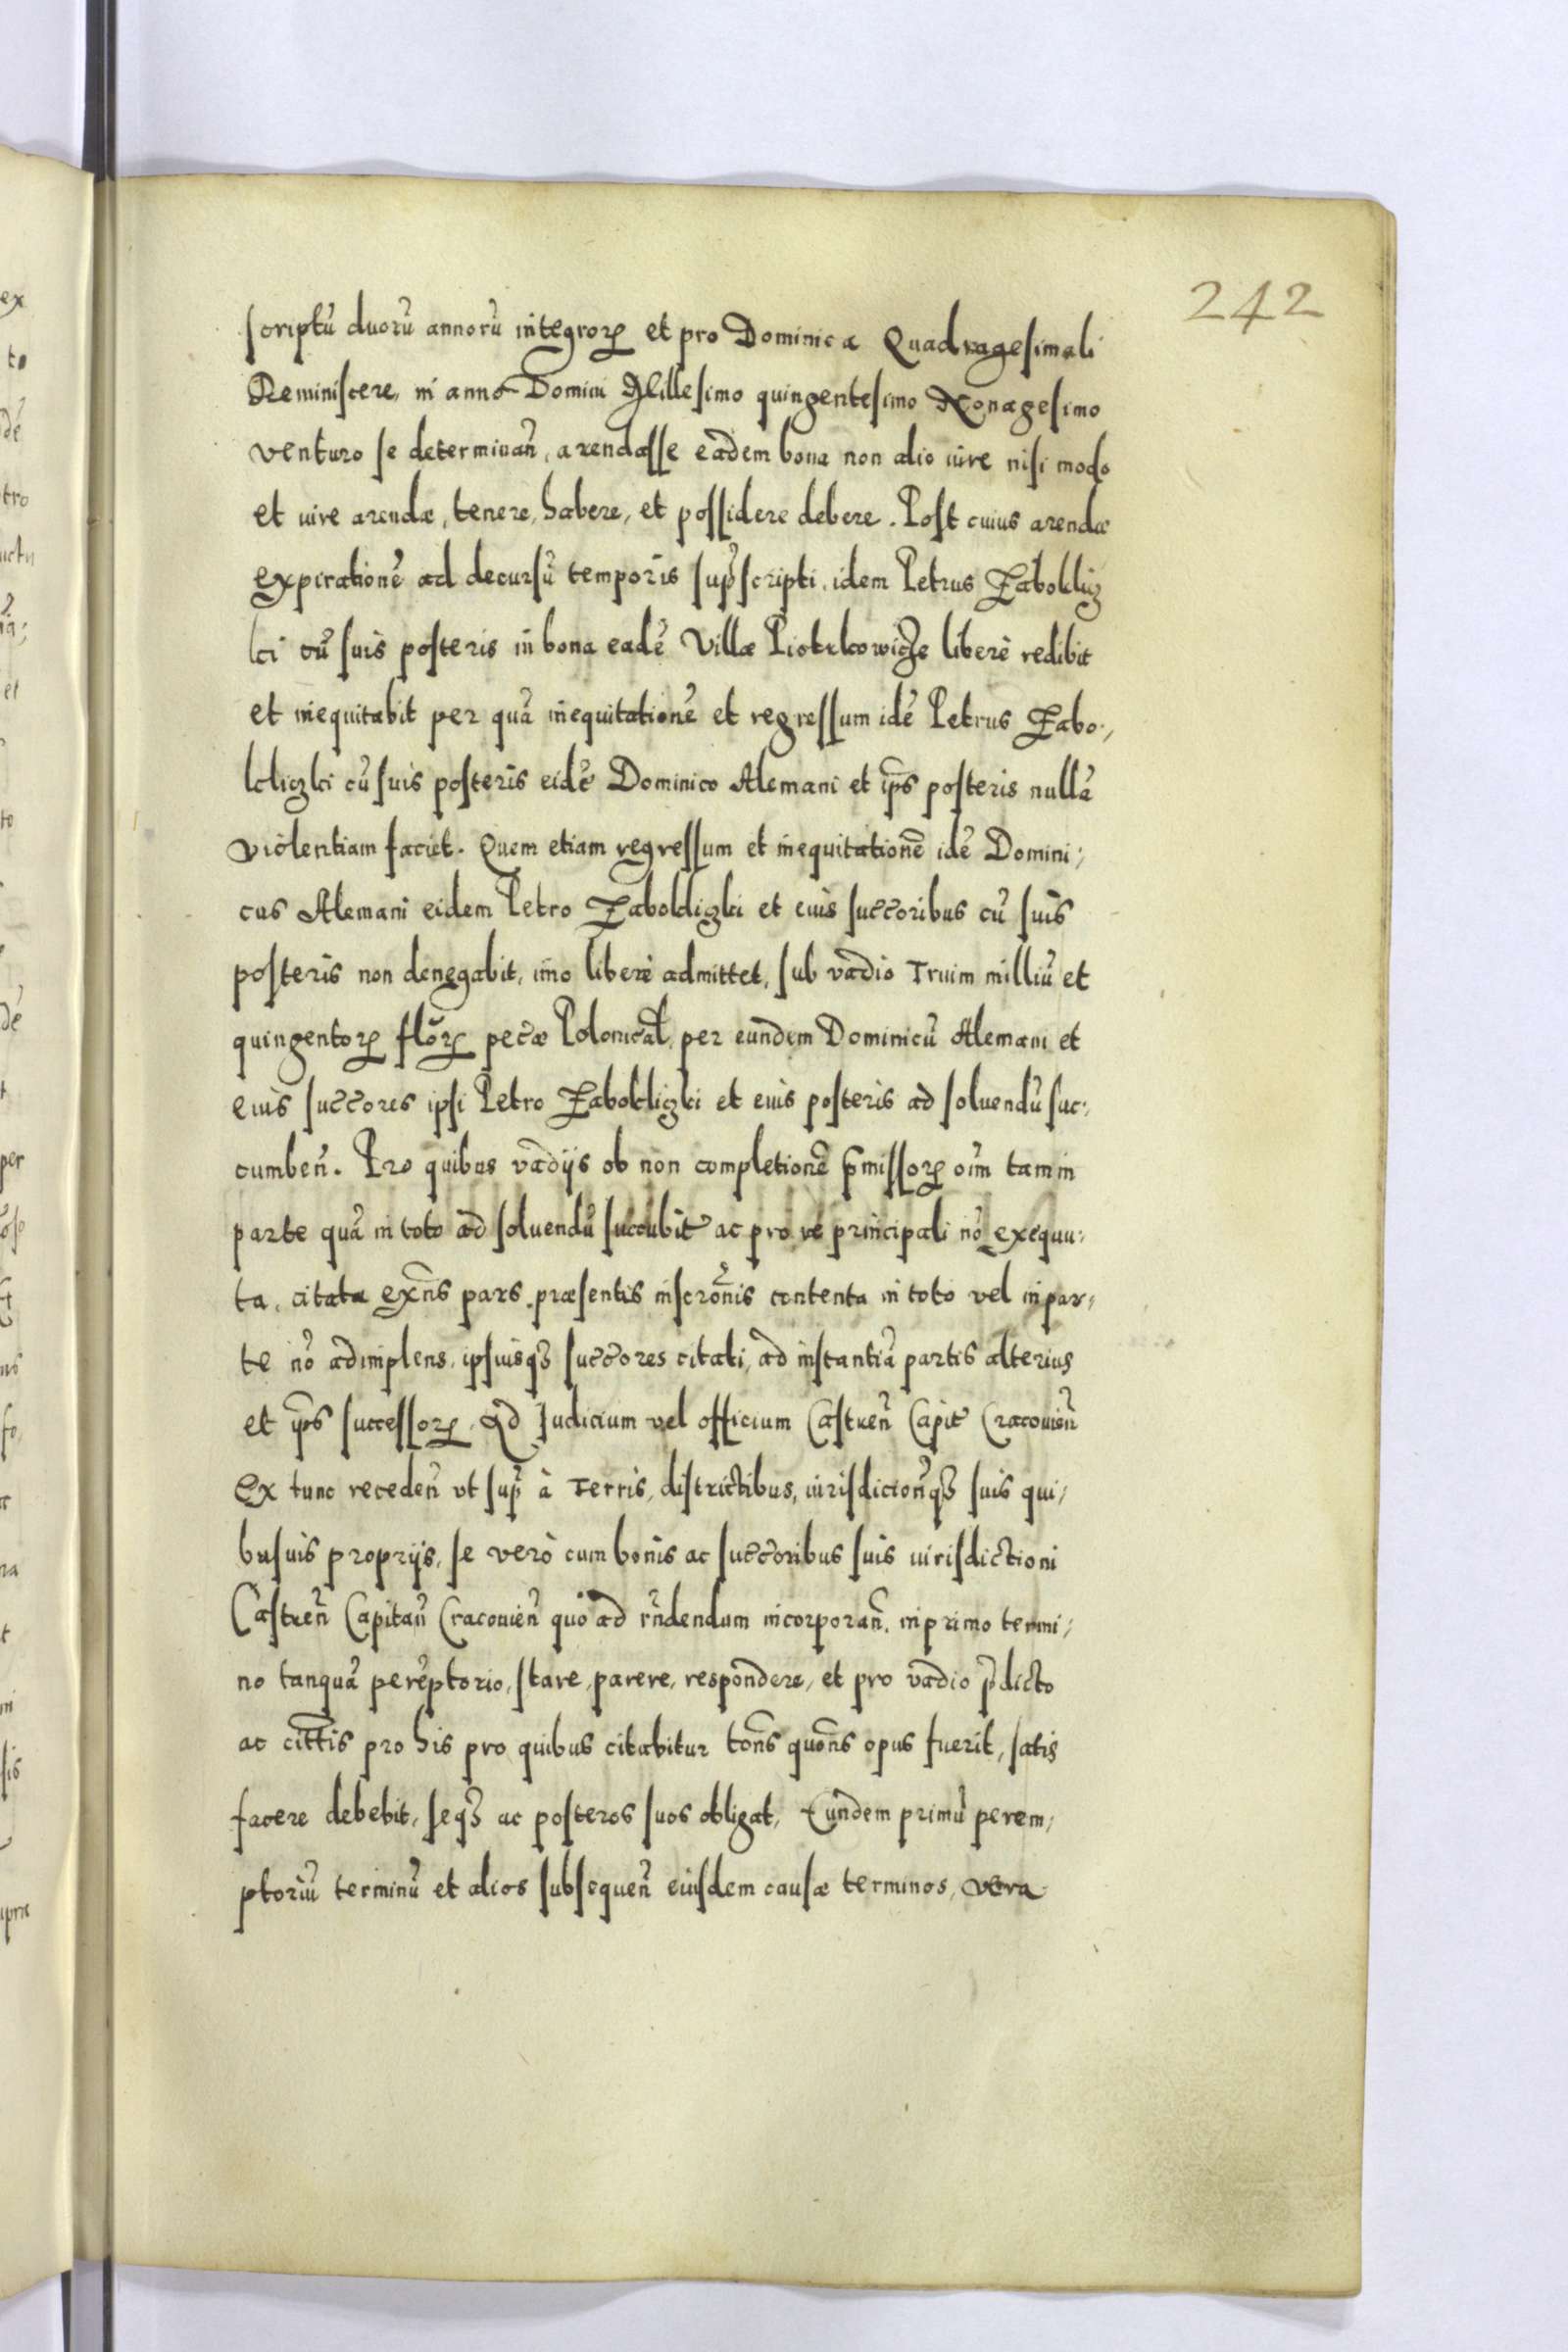 242
scriptū duorū annorū integrorꝝ et pro Dominica Quadragesimali
Reminiscere, in anno Domini Millesimo quingentesimo Nonagesimo
venturo se determinan̄, arendasse eadem bona non alio iure nisi modo
et iure arendæ, tenere, habere, et possidere debere. Post cuius arendæ
expirationē ad decursū temporis sup̄scripti, idem Petrus Zaboklig
ki cū suis posteris in bona eadē Villæ Piotrkowicze liberè redibit
et inequitabit per quā inequitationē et regressum idē Petrus Zabo-
kligki cū suis posteris eidē Dominico Alemani et ip̄s posteris nullā
violentiam faciet. Quem etiam regressum et inequitationē idē Domini-
cus Alemani eidem Petro Zabokligki et eius succ̄oribus cū suis
posteris non denegabit, imo liberè admittet, sub vadio Trium milliū et
quingentorꝝ flōrꝝ pec̄æ Polonical, per eundem Dominicū Alemani et
eius succ̄ores ipsi Petro Zabokligki et eius posteris ad soluendū suc-
cumben̄. Pro quibus vadijs ob non completionē p̄missorꝝ oīm tam in
parte quā in toto ad soluendū succubit̄ ac pro re principali nō exequu-
ta, citata exn̄s pars præsentis inscron̄is contenta in toto vel in par-
te nō adimplens, ipsiusqꝫ succ̄ores citati, ad instantiā partis alterius
et ip̄s successorꝝ, Ad Judicium vel officium Castren̄ Capit̄ Cracouien̄
Ex tunc receden̄ vt sup̄ à Terris, districtibus, iurisdicion̄qꝫ suis qui-
busuis proprijs, se verò cum bonis ac succ̄oribus suis iurisdictioni
Castren̄ Capitan̄ Cracouien̄ quo ad rn̄dendum incorporan̄, in primo termi-
no tanquā perēptorio, stare, parere, respondere, et pro vadio p̄dicto
ac citt̄is pro his pro quibus citabitur ton̄s quon̄s opus fuerit, satis
facere debebit, seqꝫ ac posteros suos obligat, Eundem primū perem-
ptoriū terminū et alios subsequen̄ eiusdem causæ terminos, vera